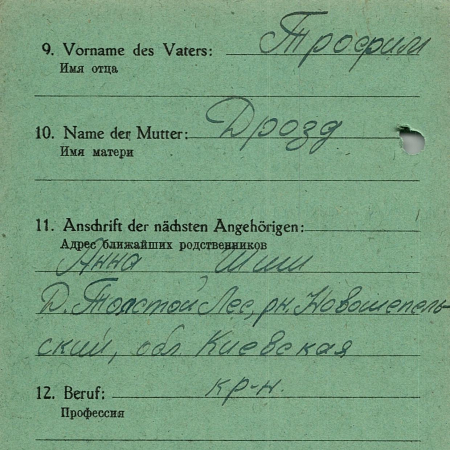 9. Vorname des Vaters: Трофим
Имя отца
10. Name der Mutter: Дрозд
Имя матери
11. Anschrift der nächsten Angehörigen:
Адрес ближайших родственников
Анна Шиш
Д. Толстой Лес, рн. Новошепель-
ский, обл Киевская
12. Beruf: кр-н.
Профессия